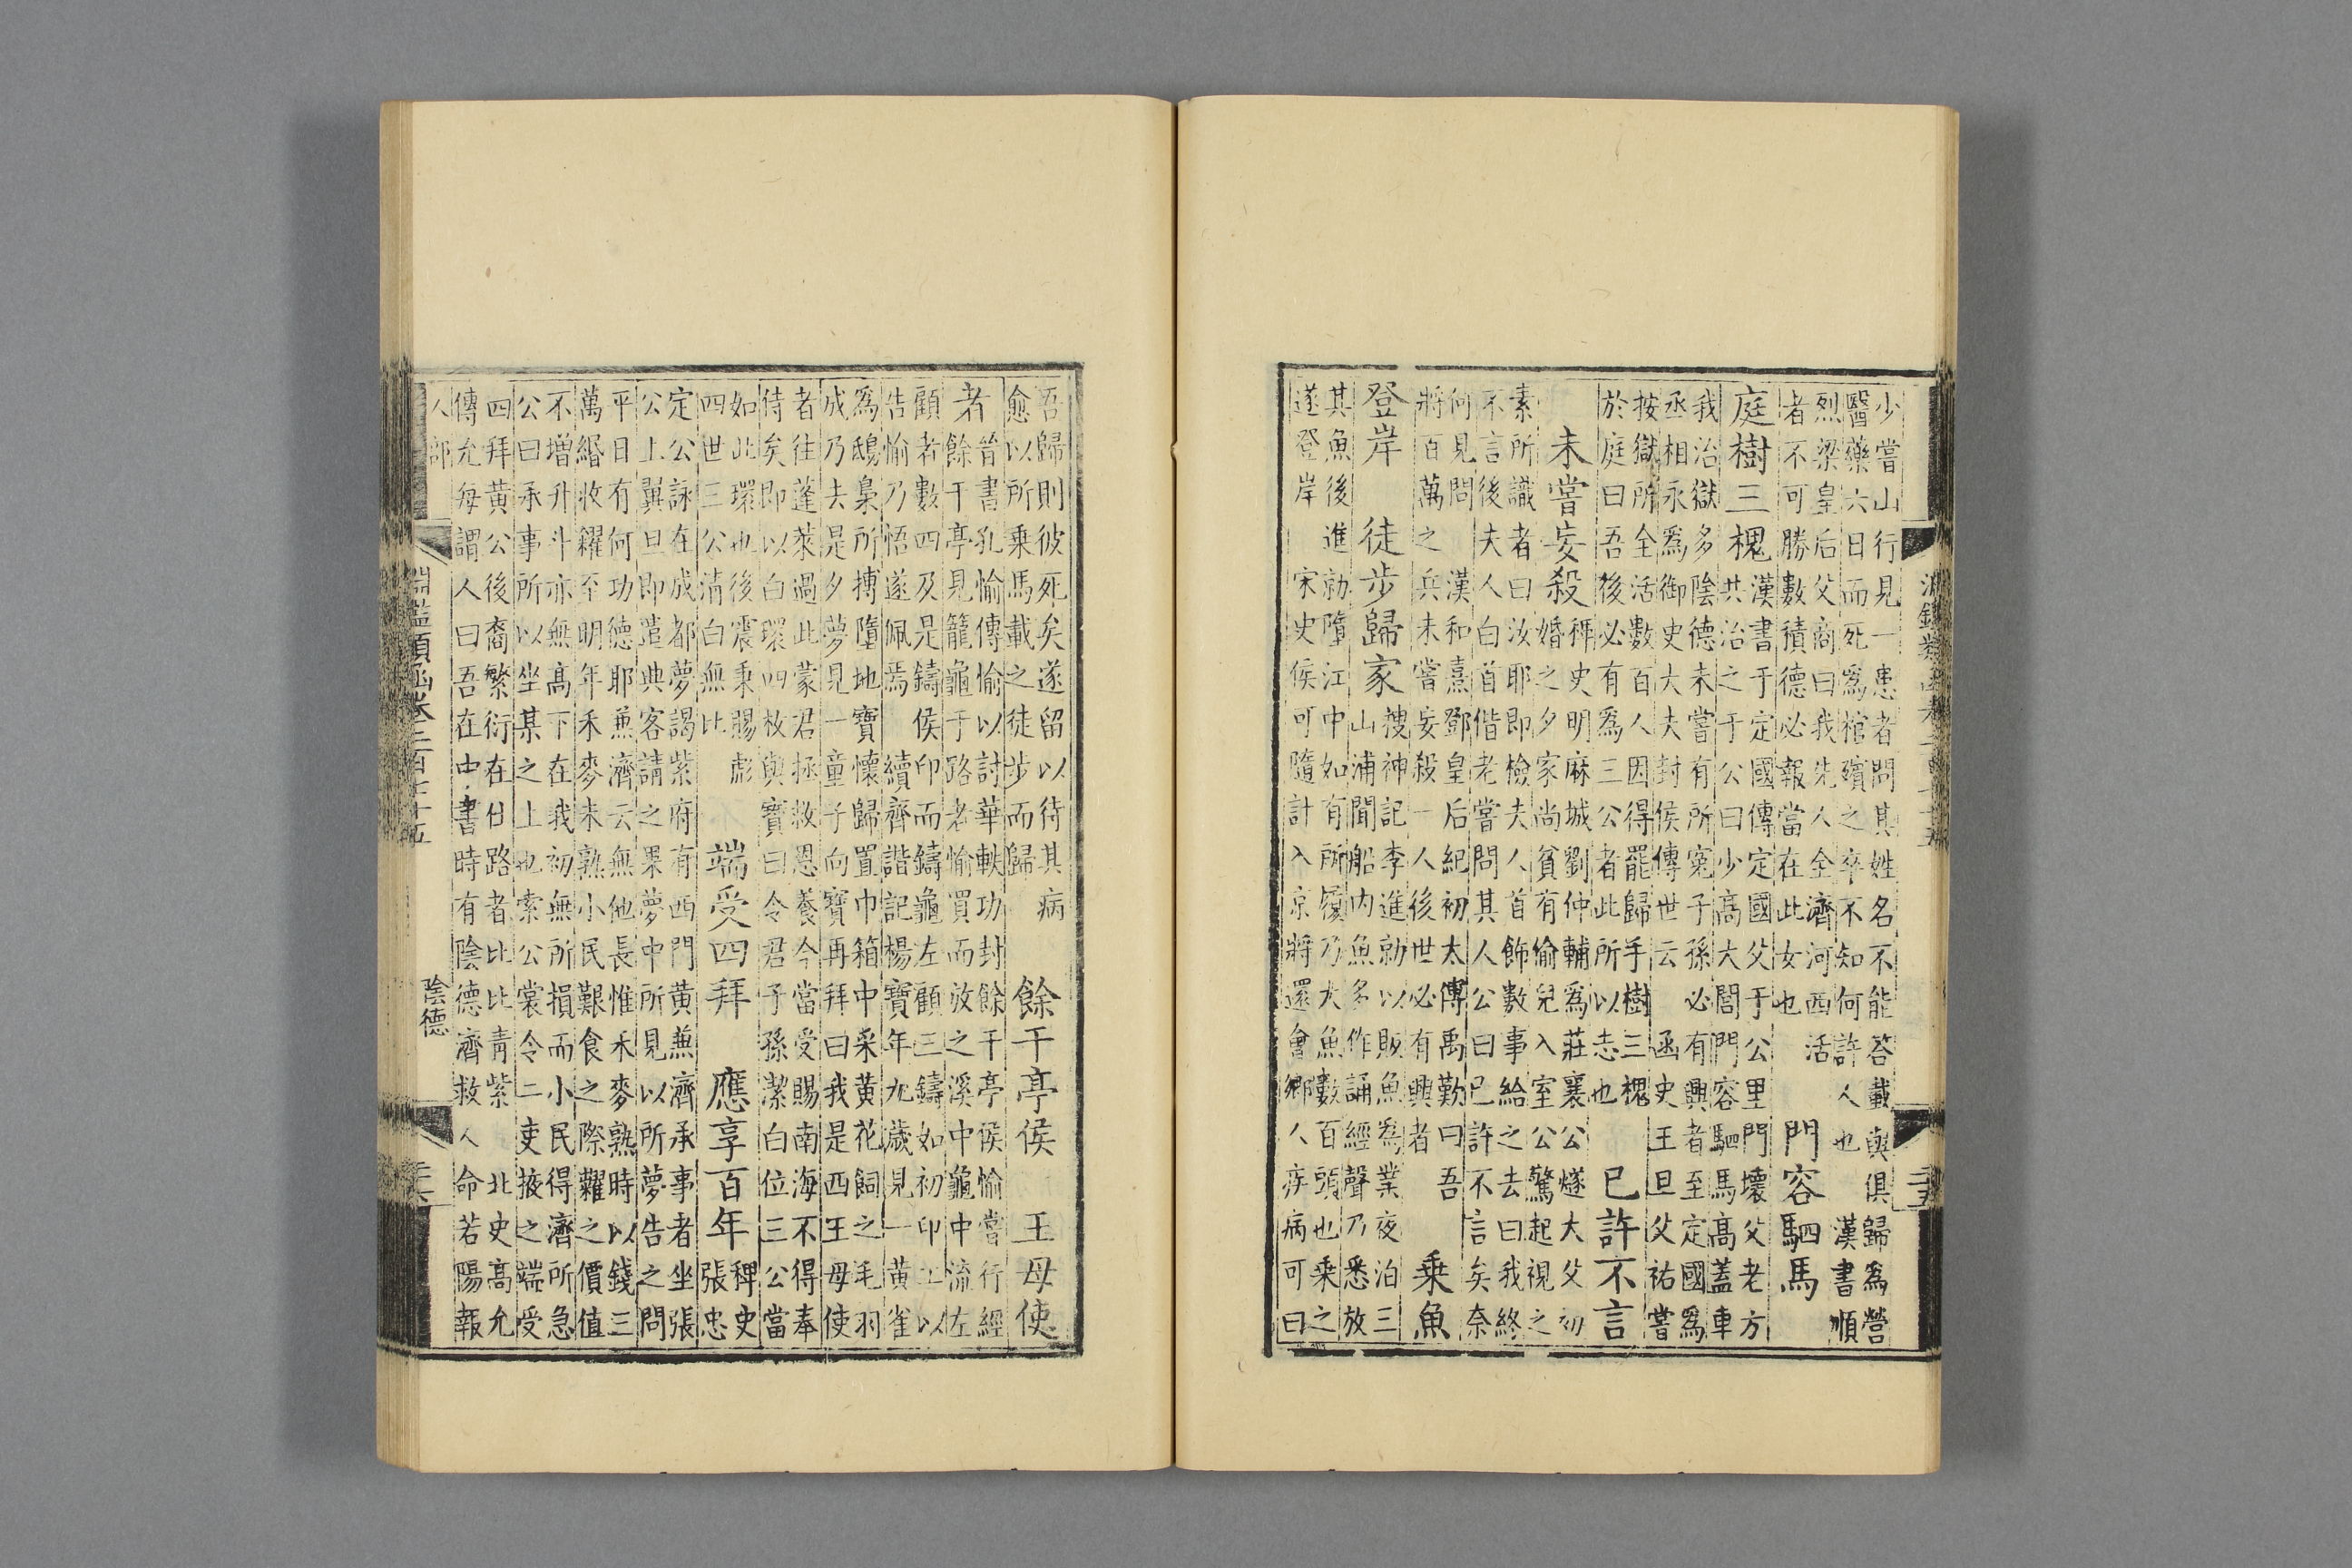 淵鑑類函卷二百七十五
二十五
少嘗山行見一患者問其姓名不能答載與俱歸爲營
醫藥六日而死爲棺殯之卒不知何許人也 漢書順
烈梁皇后父商曰我先人全濟河西活
者不可勝數積德必報當在此女也
門容駟馬
庭樹三槐
漢書于定國傳定國父于公里門壞父老方
共治之于公曰少高大閭門容駟馬高蓋車
我治獄多陰德未嘗有所寃子孫必有興者至定國爲
丞相永爲御史大夫封侯傳世云 函史王旦父祐嘗
按獄所全活數百人因得罷歸手樹三槐
於庭曰吾後必有爲三公者此所以志也
已許不言
未嘗妄殺
稗史明麻城劉仲輔爲莊襄公燧大父初
婚之夕家尚貧有偷兒入室公驚起視之
素所識者曰汝耶即檢夫人首飾數事給之去曰我終
不言後夫人白首偕老嘗問其人公曰已許不言矣奈
何見問 漢和熹鄧皇后紀初太傅禹勤曰吾
將百萬之兵未嘗妄殺一人後世必有興者
乘魚
登岸 徒步歸家
搜神記李進勍以販魚爲業夜泊三
山浦聞船内魚多作誦經聲乃悉放
其魚後進勍墮江中如有所履乃大魚數百頭也乘之
遂登岸 宋史侯可隨計入京將還會鄉人疾病可曰
吾歸則彼死矣遂留以待其病
愈以所乘馬載之徒步而歸
餘干亭侯 王母使
者
晉書孔愉傳愉以討華軼功封餘干亭侯愉嘗行經
餘干亭見籠龜于路者愉買而放之溪中龜中流左
顧者數四及是鑄侯印而鑄龜左顧三鑄如初印工以
告愉乃悟遂佩焉 續齊諧記楊寶年九歲見一黃雀
爲鴟梟所搏墮地寶懷歸置巾箱中采黃花飼之毛羽
成乃去是夕夢見一童子向寶再拜曰我是西王母使
者往蓬萊過此蒙君拯救恩養今當受賜南海不得奉
侍矣即以白環四枚與寶曰令君子孫潔白位三公當
如此環也後震秉賜彪
四世三公清白無比
端受四拜 應享百年
稗史
張忠
定公詠在成都夢謁紫府有西門黃兼濟承事者坐張
公上翼旦即遣典客請之果夢中所見以所夢告之問
平日有何功德耶兼濟云無他長惟禾麥熟時以錢三
萬緡收糴至明年禾麥未熟小民艱食之際糶之價值
不增升斗亦無高下在我初無所損而小民得濟所急
公曰承事所以坐某之上也索公裳令二吏掖之端受
四拜黃公後裔繁衍在仕路者比比青紫 北史高允
傳允每謂人曰吾在中書時有陰德濟救人命若陽報
人部
淵鑑類函卷二百七十五
陰德
二十六